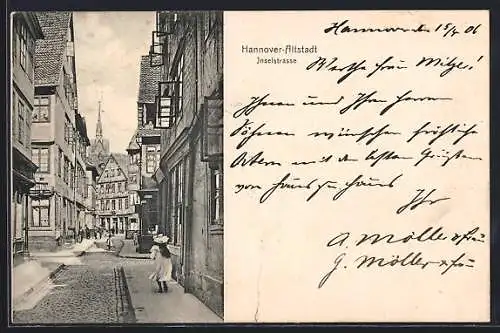 Hannover-Altstadt
Inselstrasse
Hannover 15/4 06
Werthe Frau Mitzge!
Ihnen und Ihren Herren
Söhnen wünschen fröhliche
Ostern mit den besten Grüßen
von Haus zu Haus
Ihr
A. Möller u. Frau
G. Möller u. Frau